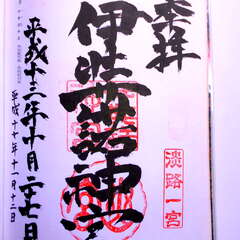 奉拝
淡路一宮
伊弉諾神宮
平成十三年十月二七日
平成十七年十一月十三日